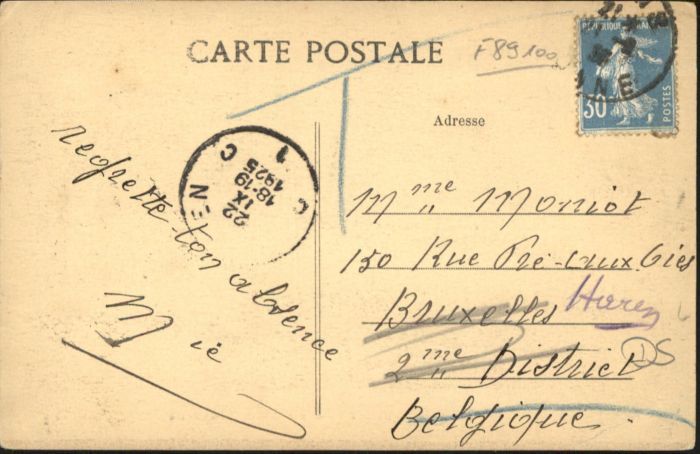 CARTE POSTALE
F89100
REPUBLIQUE FRANÇAISE
30
POSTES
NE
Adresse
C
1
22
IX
18-19
1925
C
EN
regrette ton absence
Mie
Mme Moniot
150 Rue Pré-aux Oies
Bruxelles Haren
2me District
DS
Belgique